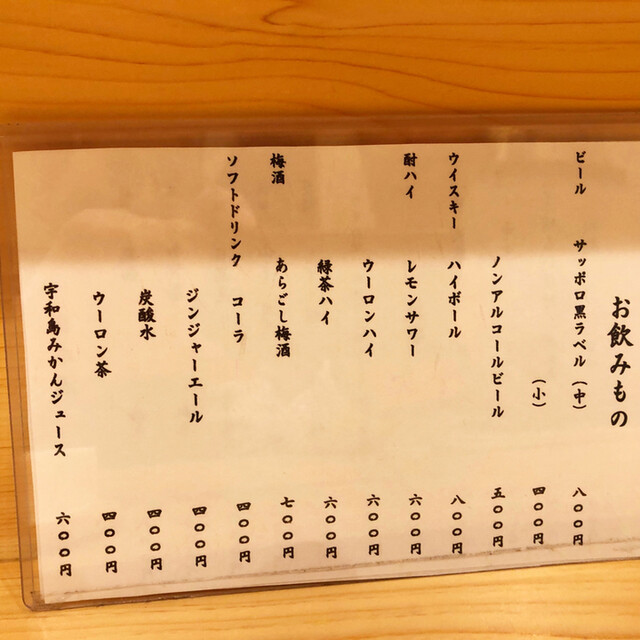 お飲みもの
ビール サッポロ黒ラベル（中） 八〇〇円
（小） 四〇〇円
ノンアルコールビール 五〇〇円
ウイスキー ハイボール 八〇〇円
酎ハイ レモンサワー 六〇〇円
ウーロンハイ 六〇〇円
緑茶ハイ 六〇〇円
梅酒 あらごし梅酒 七〇〇円
ソフトドリンク コーラ 四〇〇円
ジンジャーエール 四〇〇円
炭酸水 四〇〇円
ウーロン茶 四〇〇円
宇和島みかんジュース 六〇〇円